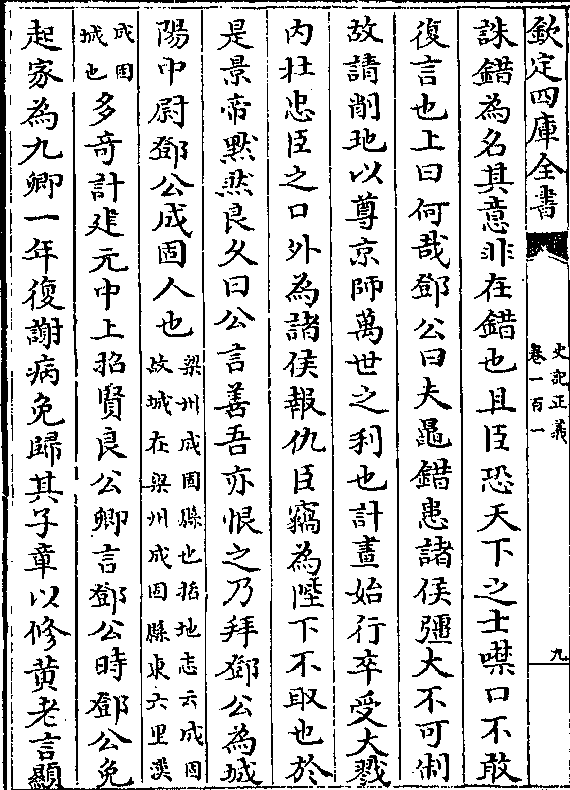 欽定四庫全書
史記正義
卷一百一
九
誅錯為名其意非在錯也且臣恐天下之士噤口不敢
復言也上曰何哉鄧公曰夫鼂錯患諸侯彊大不可制
故請削地以尊京師萬世之利也計畫始行卒受大戮
内杜忠臣之口外為諸侯報仇臣竊為陛下不取也於
是景帝黙然良久曰公言善吾亦恨之乃拜鄧公為城
陽中尉鄧公成固人也
梁州成固縣也括地志云成固
故城在梁州成固縣東六里漢
成固
城也
多奇計建元中上招賢良公卿言鄧公時鄧公免
起家為九卿一年復謝病免歸其子章以修黄老言顯